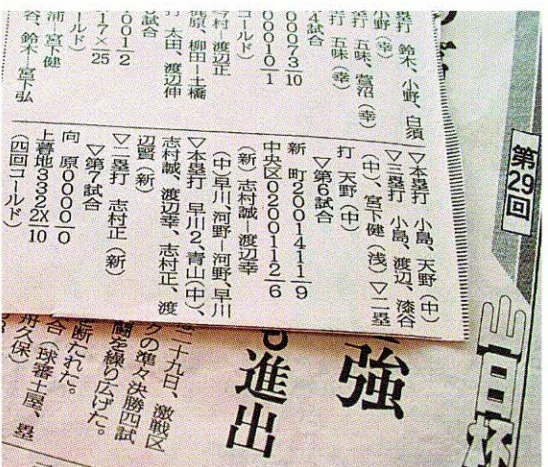 第29回
山日杯
強
進出
塁打 鈴木、小野、白須
小野(幸)
塁打 五味、萱沼(幸)
打 五味(幸)
4試合
000073 10
000010 1
今村ー渡辺正
原、柳田ー土橋
打 太田、渡辺伸
試合
001 2
17X 25
ールド)
浦ー宮下健
谷、鈴木ー宮下弘
▽本塁打 小島、天野(中)
▽三塁打 小島、渡辺、漆谷
(中)、宮下健(浅)▽二塁
打 天野(中)
▽第6試合
新 町2001411 9
中央区0200112 6
(新)志村誠ー渡辺幸
(中)早川、河野ー河野、早川
▽本塁打 早川2、青山(中)、
志村誠、渡辺幸、志村正、渡
辺賢(新)
▽二塁打 志村正(新)
▽第7試合
向 原0000 0
上暮地3322X 10
(四回コールド)
二十九日、激戦区
クの準々決勝四試
闘を繰り広げた。
断たれた。
合(球審土屋、塁
舟久保)